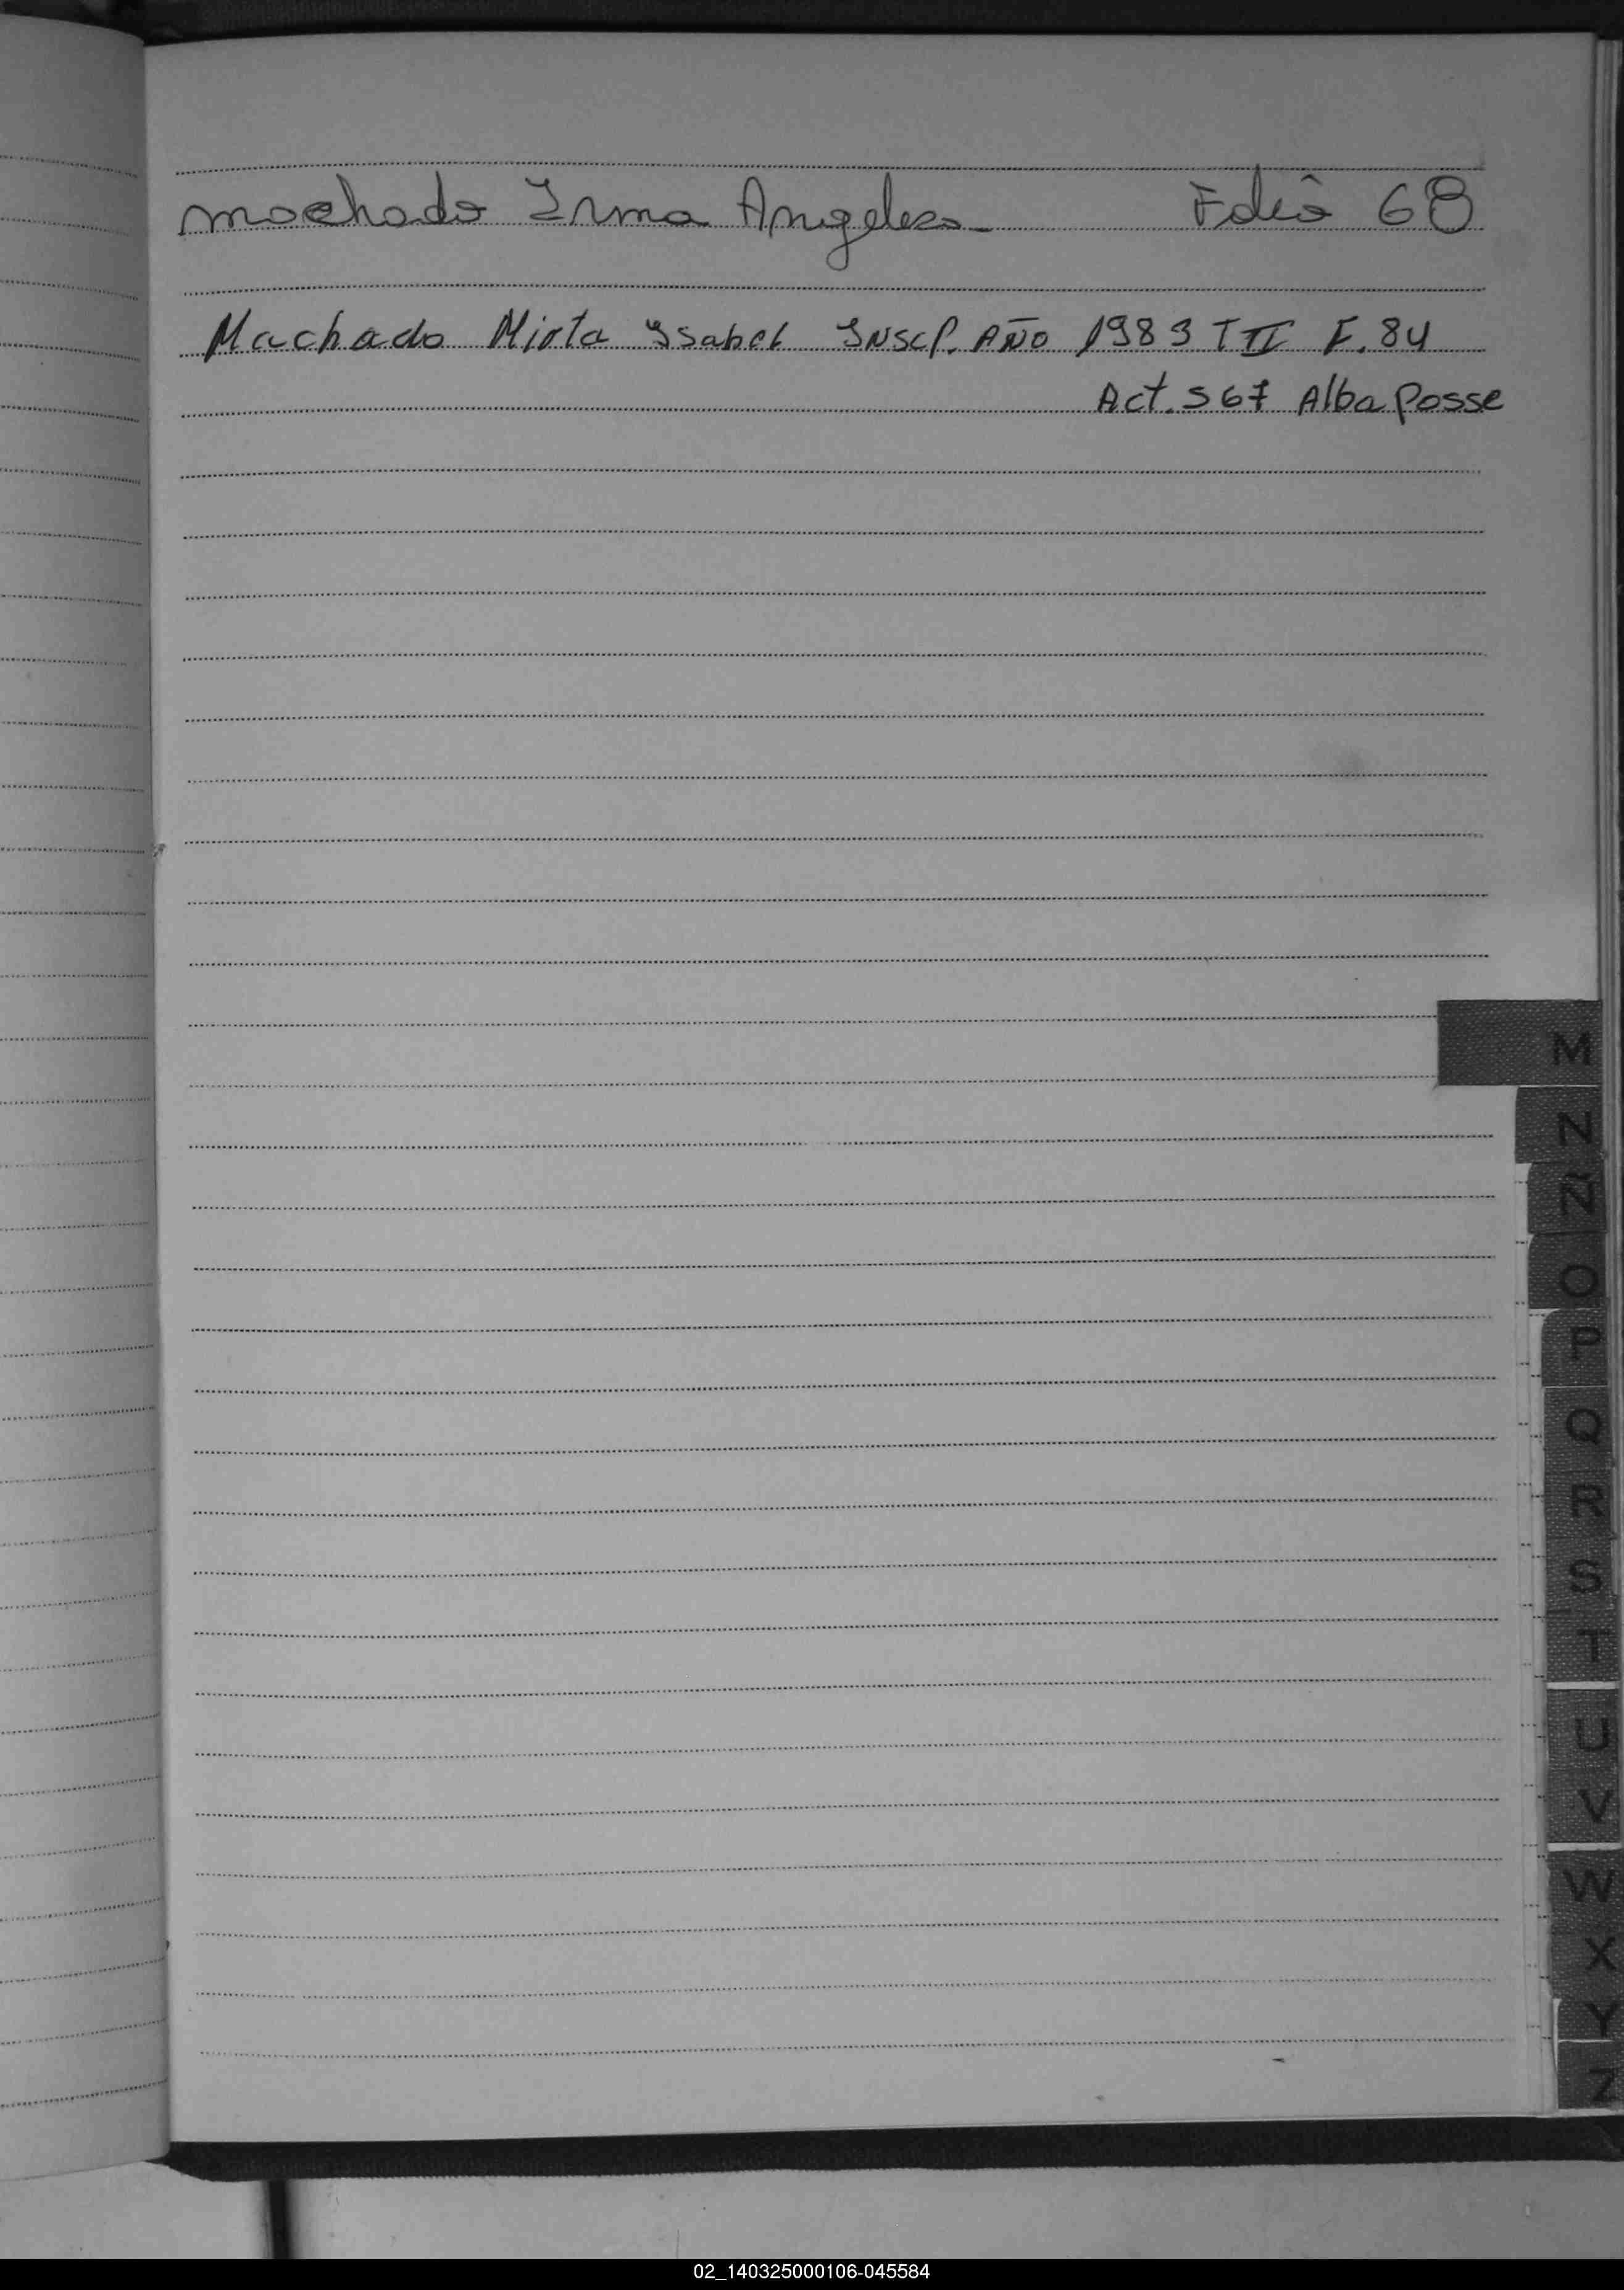 Machado Irma Angelesa- Folio 68
Machado Mirta Ysabel Inscp. AÑO 1983 T II F. 84
Act. 567 Alba Posse
M
N
Ñ
O
P
Q
R
S
T
U
V
W
X
Y
Z
02_140325000106-045584